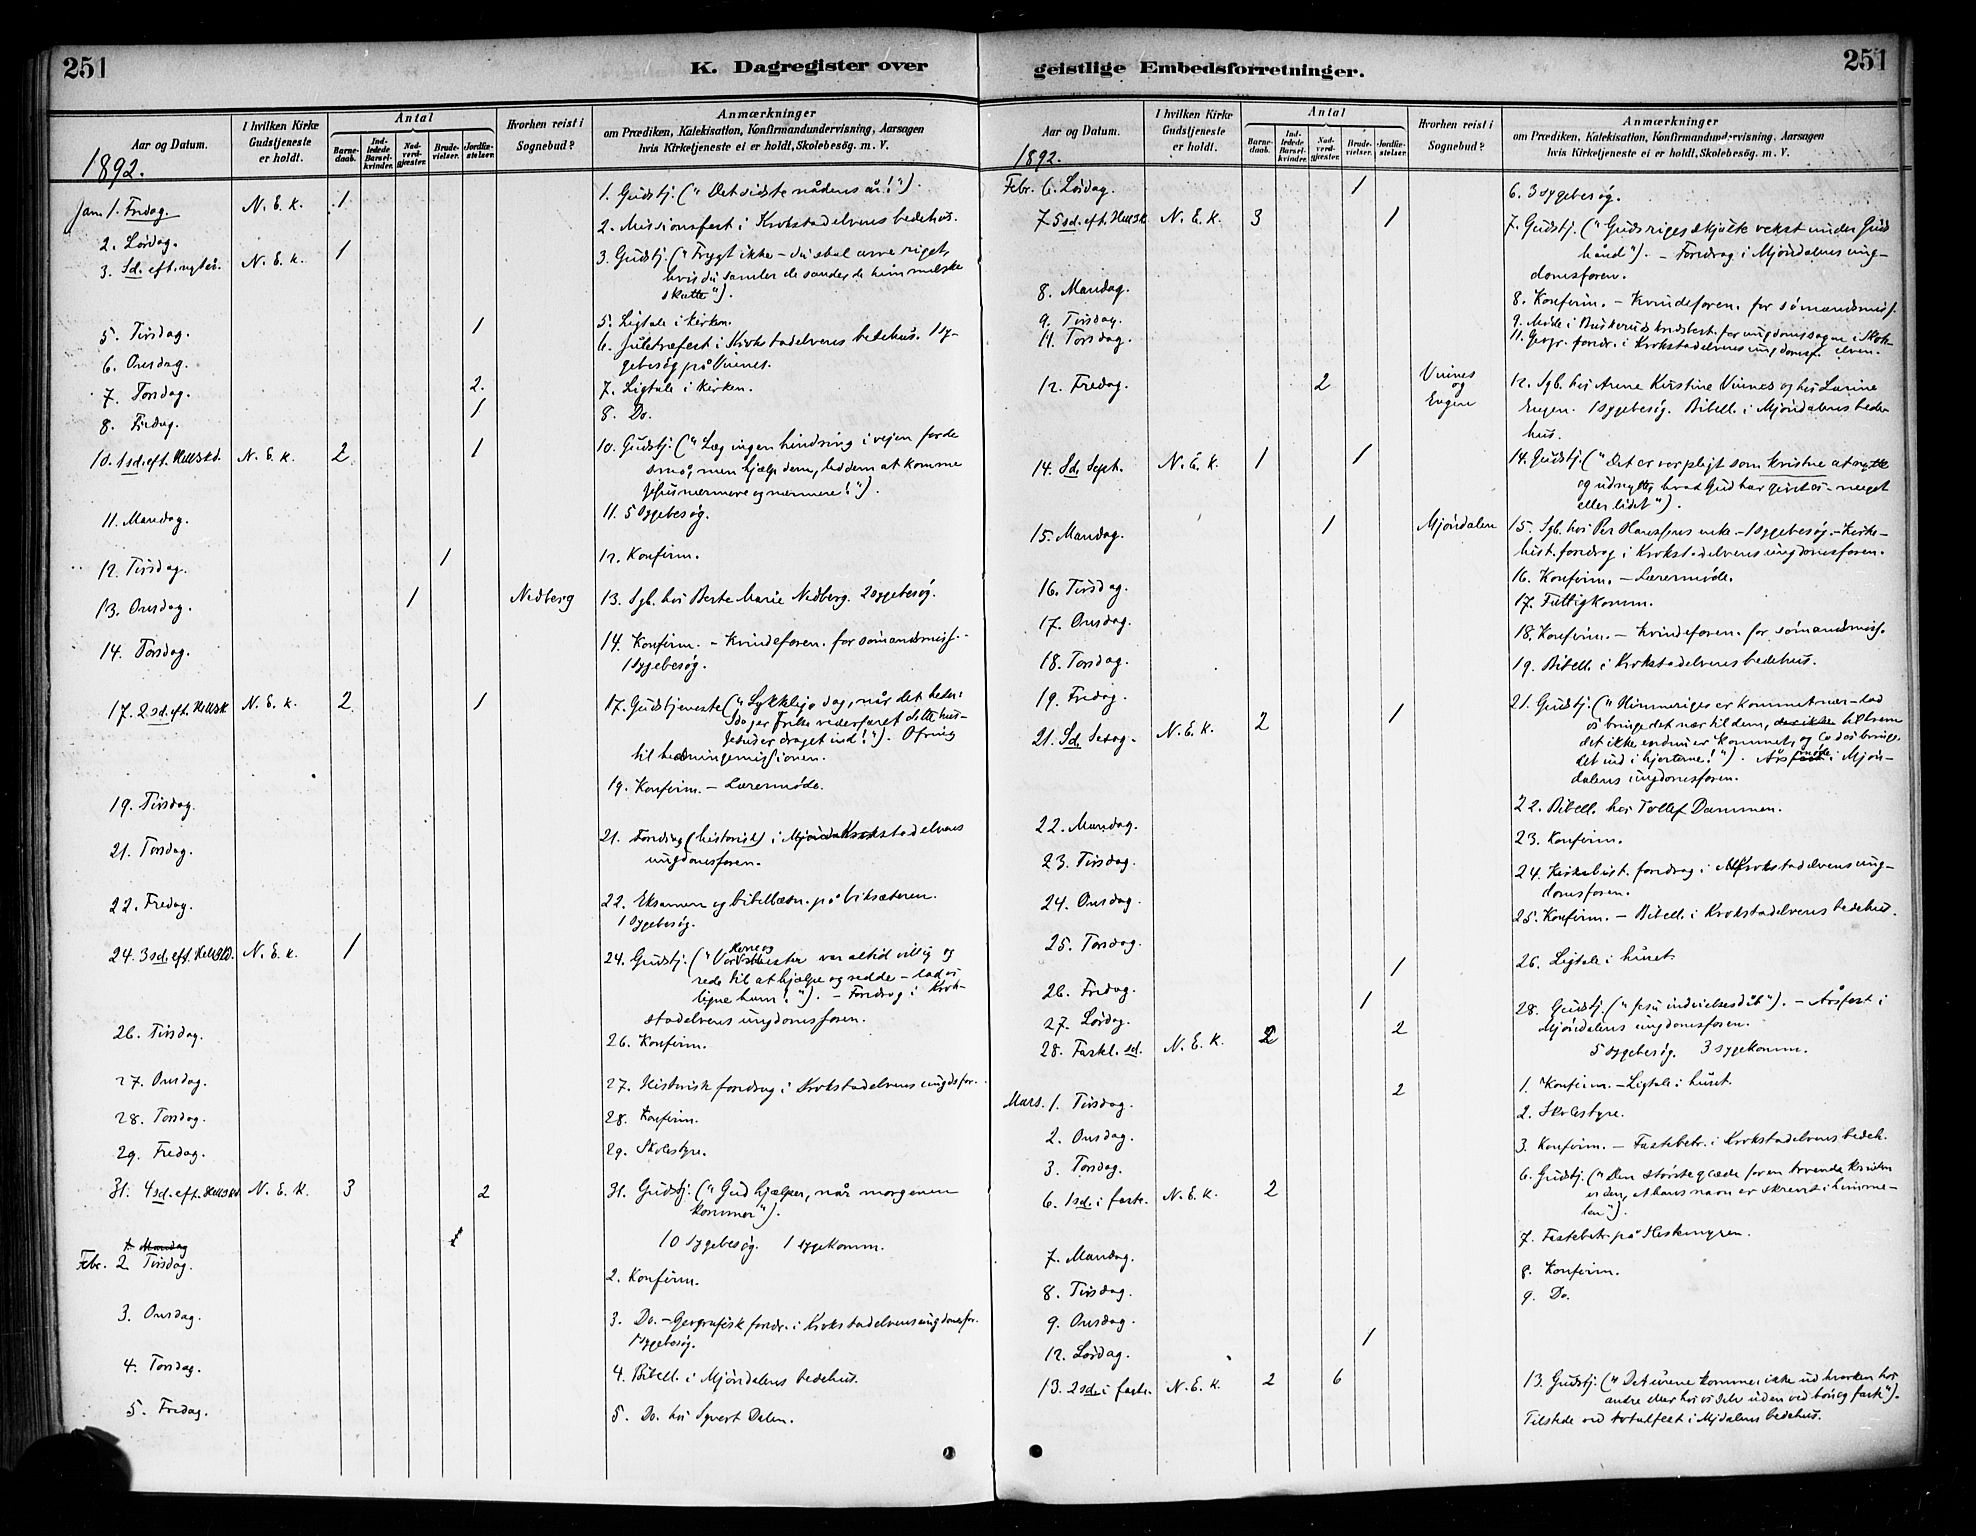 251
K. Dagregister over
Aar og Datum.
I hvilken Kirke Gudstjeneste er holdt.
Antal
Barne-daab.
Ind-ledede Barsel-kvinder.
Nad-verd-gjester.
Brude-vielser.
Jordfæ-stelser.
Hvorhen reist i Sognebud?
Anmærkninger
om Prædiken, Katekisation, Konfirmandundervisning, Aarsagen
hvis Kirketjeneste ei er holdt, Skolebesøg. m. V.
1892.
Jan. 1. Fredag. N. E. K. 1 1. Gudstj. („Det sidste nådens år!").
2. Lørdag. 2. Missionsfest i Krokstadelvens bedehus.
3. Sd. eft. nytår. N. E. K. 1 3. Gudstj. („Frygt ikke – du skal arve riget,
hvis du samler de sande, de himmelske
skatte").
5. Tirsdag. 1 5. Ligtale i kirken.
6. Onsdag. 6. Juletræfest i Krokstadelvens bedehus. 1 sy-
gebesøg på Vinnes.
7. Torsdag. 2. 7. Ligtale i kirken.
8. Fredag. 1 8. Do.
10. 1 sd. eft. H3kd. N. E. K. 2 1 10. Gudstj. („Læg ingen hindring i vejen for de
små, men hjælp dem, led dem at komme
Jesus nærmere og nærmere!").
11. Mandag. 11. 5 sygebesøg.
12. Tirsdag. 1 12. Konfirm.
13. Onsdag. 1 Nedberg 13. Sgb. hos Berte Marie Nedberg. 2 sygebesøg.
14. Torsdag. 14. Konfirm. – Kvindeforen. for sømandsmiss. –
1 sygebesøg.
17. 2 sd. eft. N. E. K. 2 1 17. Gudstjeneste („Lykkelige dag, når det heder:
Idag er frelse vederfaret dette hus –
Jesus er draget ind!"). Ofring
til hedningemissionen.
19. Tirsdag. 19. Konfirm. – Lærermøde.
21. Torsdag. 21. Foredrag (historisk) i Krokstadelvens
ungdomsforen.
22. Fredag. 22. Eksamen og bibellæsn. på Viksæteren.
1 sygebesøg.
24. 3 sd. eft. N. E. K. 1 24. Gudstj. („Vor Herre og mester var altid villig og
rede til at hjælpe og redde – lad os
ligne ham!"). – Foredrag i Krok-
stadelvens ungdomsforen.
26. Tirsdag. 26. Konfirm.
27. Onsdag. 27. Historisk foredrag i Krokstadelvens ungdsfor.
28. Torsdag. 28. Konfirm.
29. Fredag. 29. Skolestyre.
31. 4 sd. eft. N. E. K. 3 2 31. Gudstj. („Gud hjælper, når morgenen
kommer").
1. Mandag 10 sygebesøg. 1 sygekomm.
Febr. 2 Tirsdag. 2. Konfirm.
3. Onsdag. 3. Do. – Geografisk foredr. i Krokstadelvens ungdomsfor.
1 sygebesøg.
4. Torsdag. 4. Bibell. i Mjøndalens bedehus.
5. Fredag. 5. Do. hos Syvert Dalen.
251
geistlige Embedsforretninger.
Aar og Datum.
I hvilken Kirke Gudstjeneste er holdt.
Antal
Barne-daab.
Ind-ledede Barsel-kvinder.
Nad-verd-gjester.
Brude-vielser.
Jordfæ-stelser.
Hvorhen reist i Sognebud?
Anmærkninger
om Prædiken, Katekisation, Konfirmandundervisning, Aarsagen
hvis Kirketjeneste ei er holdt, Skolebesøg. m. V.
1892.
Febr. 6. Lørdag. 1 6. 3 sygebesøg.
7 5 sd. eft. N. E. K. 3 1 7. Gudstj. („Gudsriges skjulte vekst under Guds
hånd"). – Foredrag i Mjøndalens ung-
domsforen.
8. Mandag. 8. Konfirm. – Kvindeforen. for sømandsmiss.
9. Tirsdag. 9. Møde i Buskeruds kredsbest. for ungdomssagen i Skot-
selven.
11. Torsdag. 11. Geogr. foredr. i Krokstadelvens ungdomsf.
12. Fredag. 2 Vinnes og Engen 12. Sgb. hos Anne Kristine Vinnes og hos Laurine
Engen. 1 sygebesøg. Bibell. i Mjøndalens bede-
hus.
14. Sd. Sept. N. E. K. 1 1 14. Gudstj. („Det er vor pligt som kristne at nytte
og udnytte, hvad Gud har givet os – meget
eller lidet").
15. Mandag. 1 Mjøndalen 15. Sgb. hos Per Hansens enke. – 1 sygebesøg. – Kirke-
hist. foredrag i Krokstadelvens ungdomsforen.
16. Tirsdag. 16. Konfirm. – Lærermøde.
17. Onsdag. 17. Fattigkomm.
18. Torsdag. 18. Konfirm. – Kvindeforen. for sømandsmiss.
19. Fredag. 19. Bibell. i Krokstadelvens bedehus.
21. Sd. Sexag. N. E. K. 2 1 21. Gudstj. („Himmeriges er kommet nær – lad
os bringe det nær til dem, der ikke til hvem
det ikke endnu er kommet, og lad os bringe
det ind i hjerterne!"). Årsmøde i Mjøn-
dalens ungdomsforen.
22. Mandag. 22. Bibell. hos Tollef Dammen.
23. Tirsdag. 23. Konfirm.
24. Onsdag. 24. Kirkehist. foredrag i Krokstadelvens ung-
domsforen.
25. Torsdag. 25. Konfirm. – Bibell. i Krokstadelvens bedehus.
26. Fredag. 1 26. Ligtale i huset.
27. Lørdag. 1
28. Fastel. sd. N. E. K. 2 2 28. Gudstj. („Jesu indvielsesdåb"). – Årsfest i
Mjøndalens ungdomsforen.
5 sygebesøg. 3 sygekomm.
Mars. 1. Tirsdag. 2 1. Konfirm. – Ligtale i huset.
2. Onsdag. 2. Skolestyre.
3. Torsdag. 3. Konfirm. – Fastebetr. i Krokstadelvens bedeh.
6. 1 sd. i faste. N. E. K. 2 6. Gudstj. („Den største glæde for en troende kristen
er den, at hans navn er skrevet i himme-
len").
7. Mandag. 7. Fastebetr. på Hestengen.
8. Tirsdag. 8. Konfirm.
9. Onsdag. 9. Do.
12. Lørdag. 1
13. 2 sd. i faste. N. E. K. 2 6 13. Gudstj. („Det urene kommer ikke ud hverken hos
andre eller hos os selv uden ved bøn og faste").
Tilstede ved totalfest i Mjdalens bedehus.